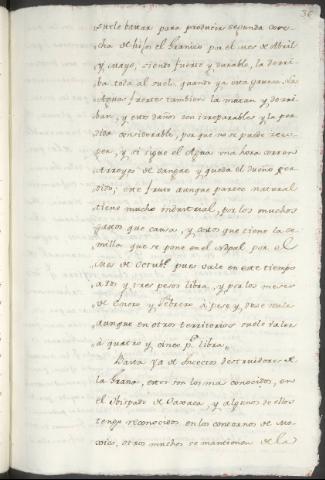 36
suele bastar para producir segunda cose-
cha de hijos el Granizo por el mes de Abril
y mayo, siendo fuerte y durable, la derri-
ba toda al suelo, quando ya esta grande. La
Agua fuertes tambien la matan y derri-
ban, y estos daños son irreparables y la per-
dida considerable, por que no se puede reco-
ger, y si sigue el Agua una hora corren
Arroyos de sangre y queda el Dueño per-
dido; este fruto aunque parece natural
tiene mucho industrial, por los muchos
gastos que causa, y costos que tiene la se-
milla que se pone en el Nopal por el
Mes de Octubre pues vale en este tiempo
a dos y tres pesos libra, y por los meses
de Enero y Febrero à peso y, doze reales
aunque en otros territorios suele valer
à quatro y cinco ps. libra.
Basta ya de Insectos destruidores de
la Grana, estos son los mas conocidos, en
el Obispado de Oaxaca, y algunos de ellos
tengo reconocidos en los contornos de Me-
xico, otros muchos se mantienen de la